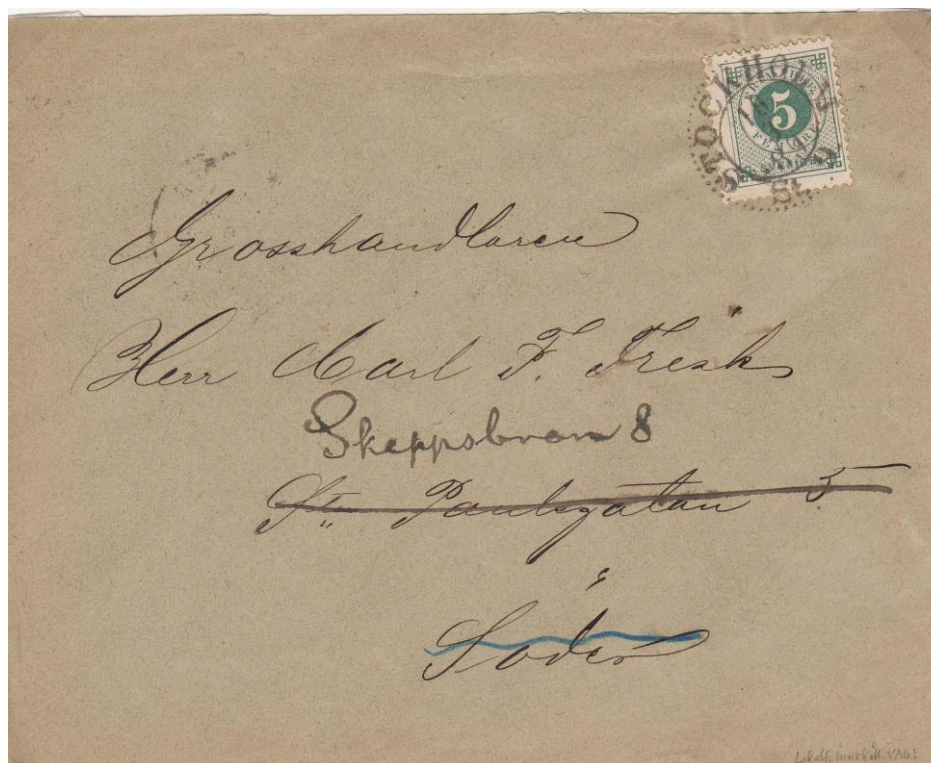 STOCKHOLM
5
FEM ÖRE
Grosshandlaren
Herr Carl F. Fresk
Skeppsbron 8
S:ta Paulsgatan 5
Söder